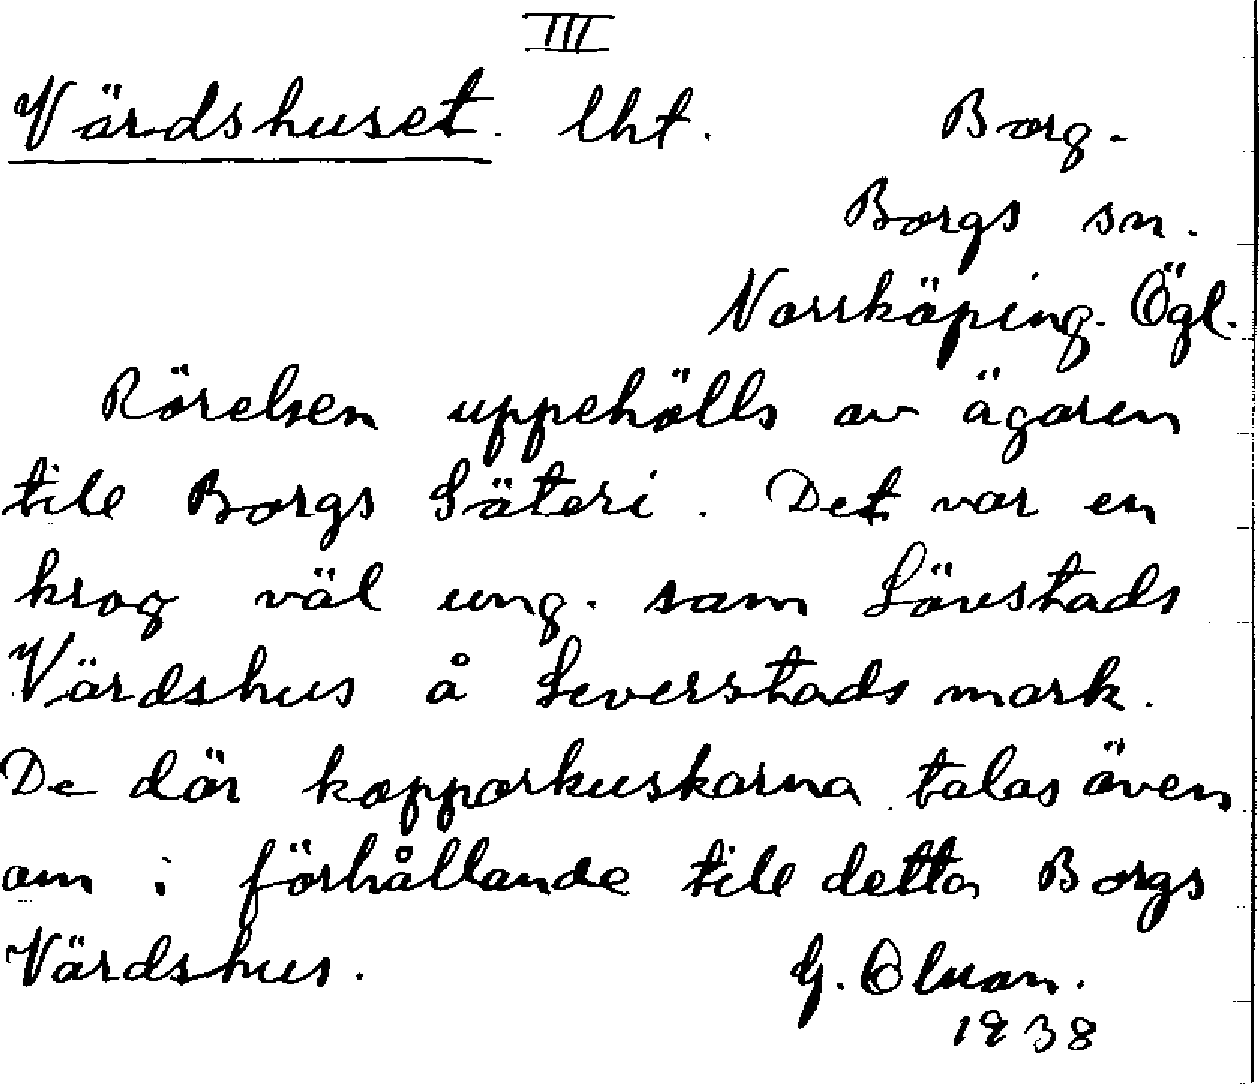 III
Värdshuset. lht. Borg.
Borgs sn.
Norrköping. Ögl.
Rörelsen uppehölls av ägaren
till Borgs Säteri. Det var en
krog väl ung. som Lövstads
Värdshus å Leverstads mark.
De där kopparkuskarna talas även
om i förhållande till detta Borgs
Värdshus. G. Olsson.
1938